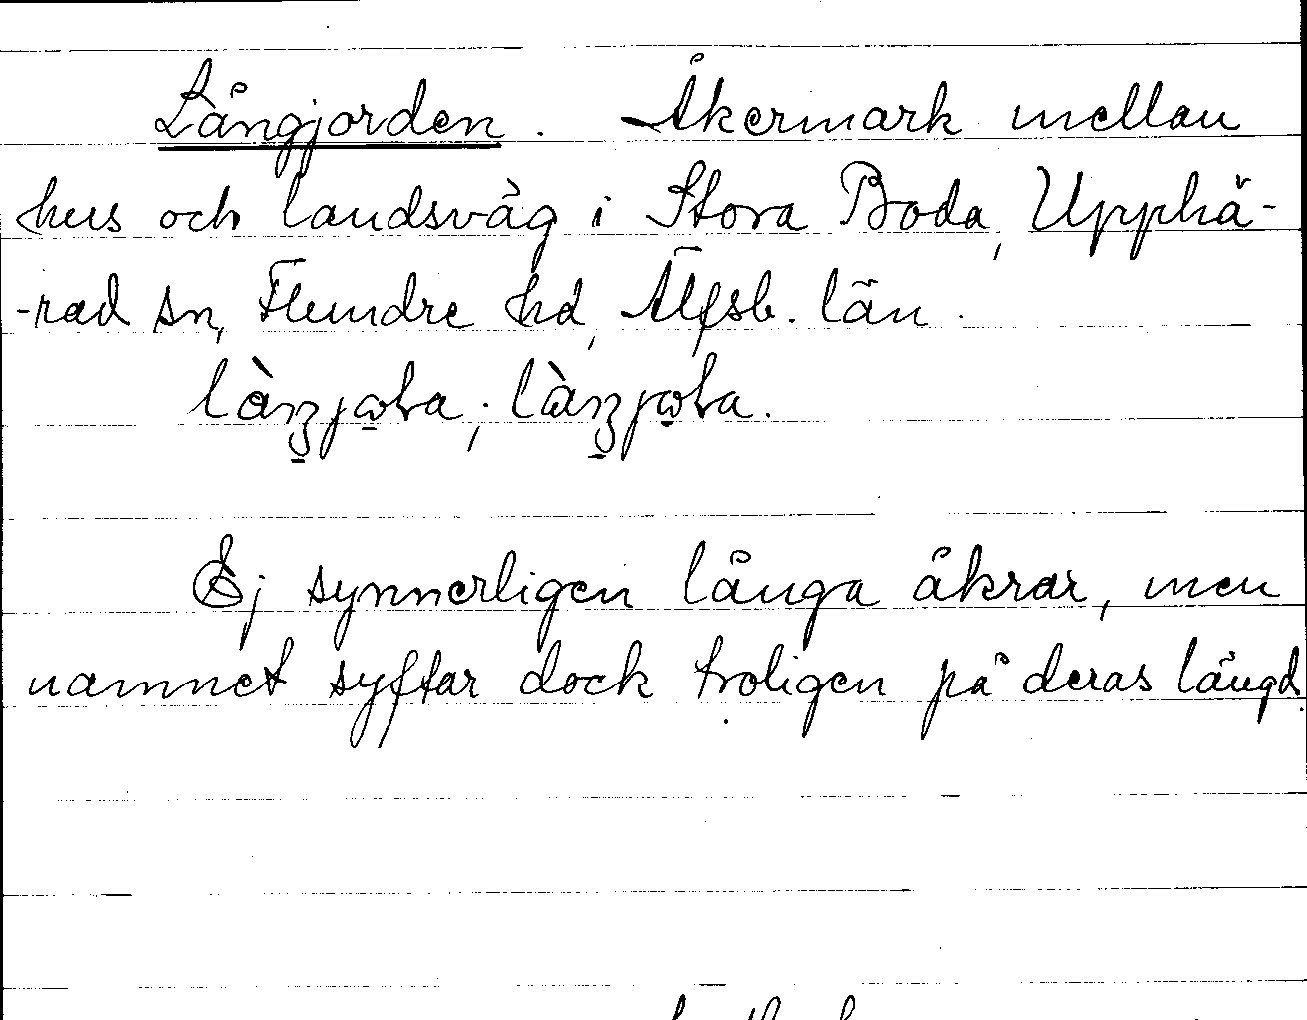 Långjorden. Åkermark mellan
hus och landsväg i Stora Boda, Upphä-
-rad sn, Flundre hd, Älfsb. län.
Ej synnerligen långa åkrar, men
namnet syftar dock troligen på deras längd.